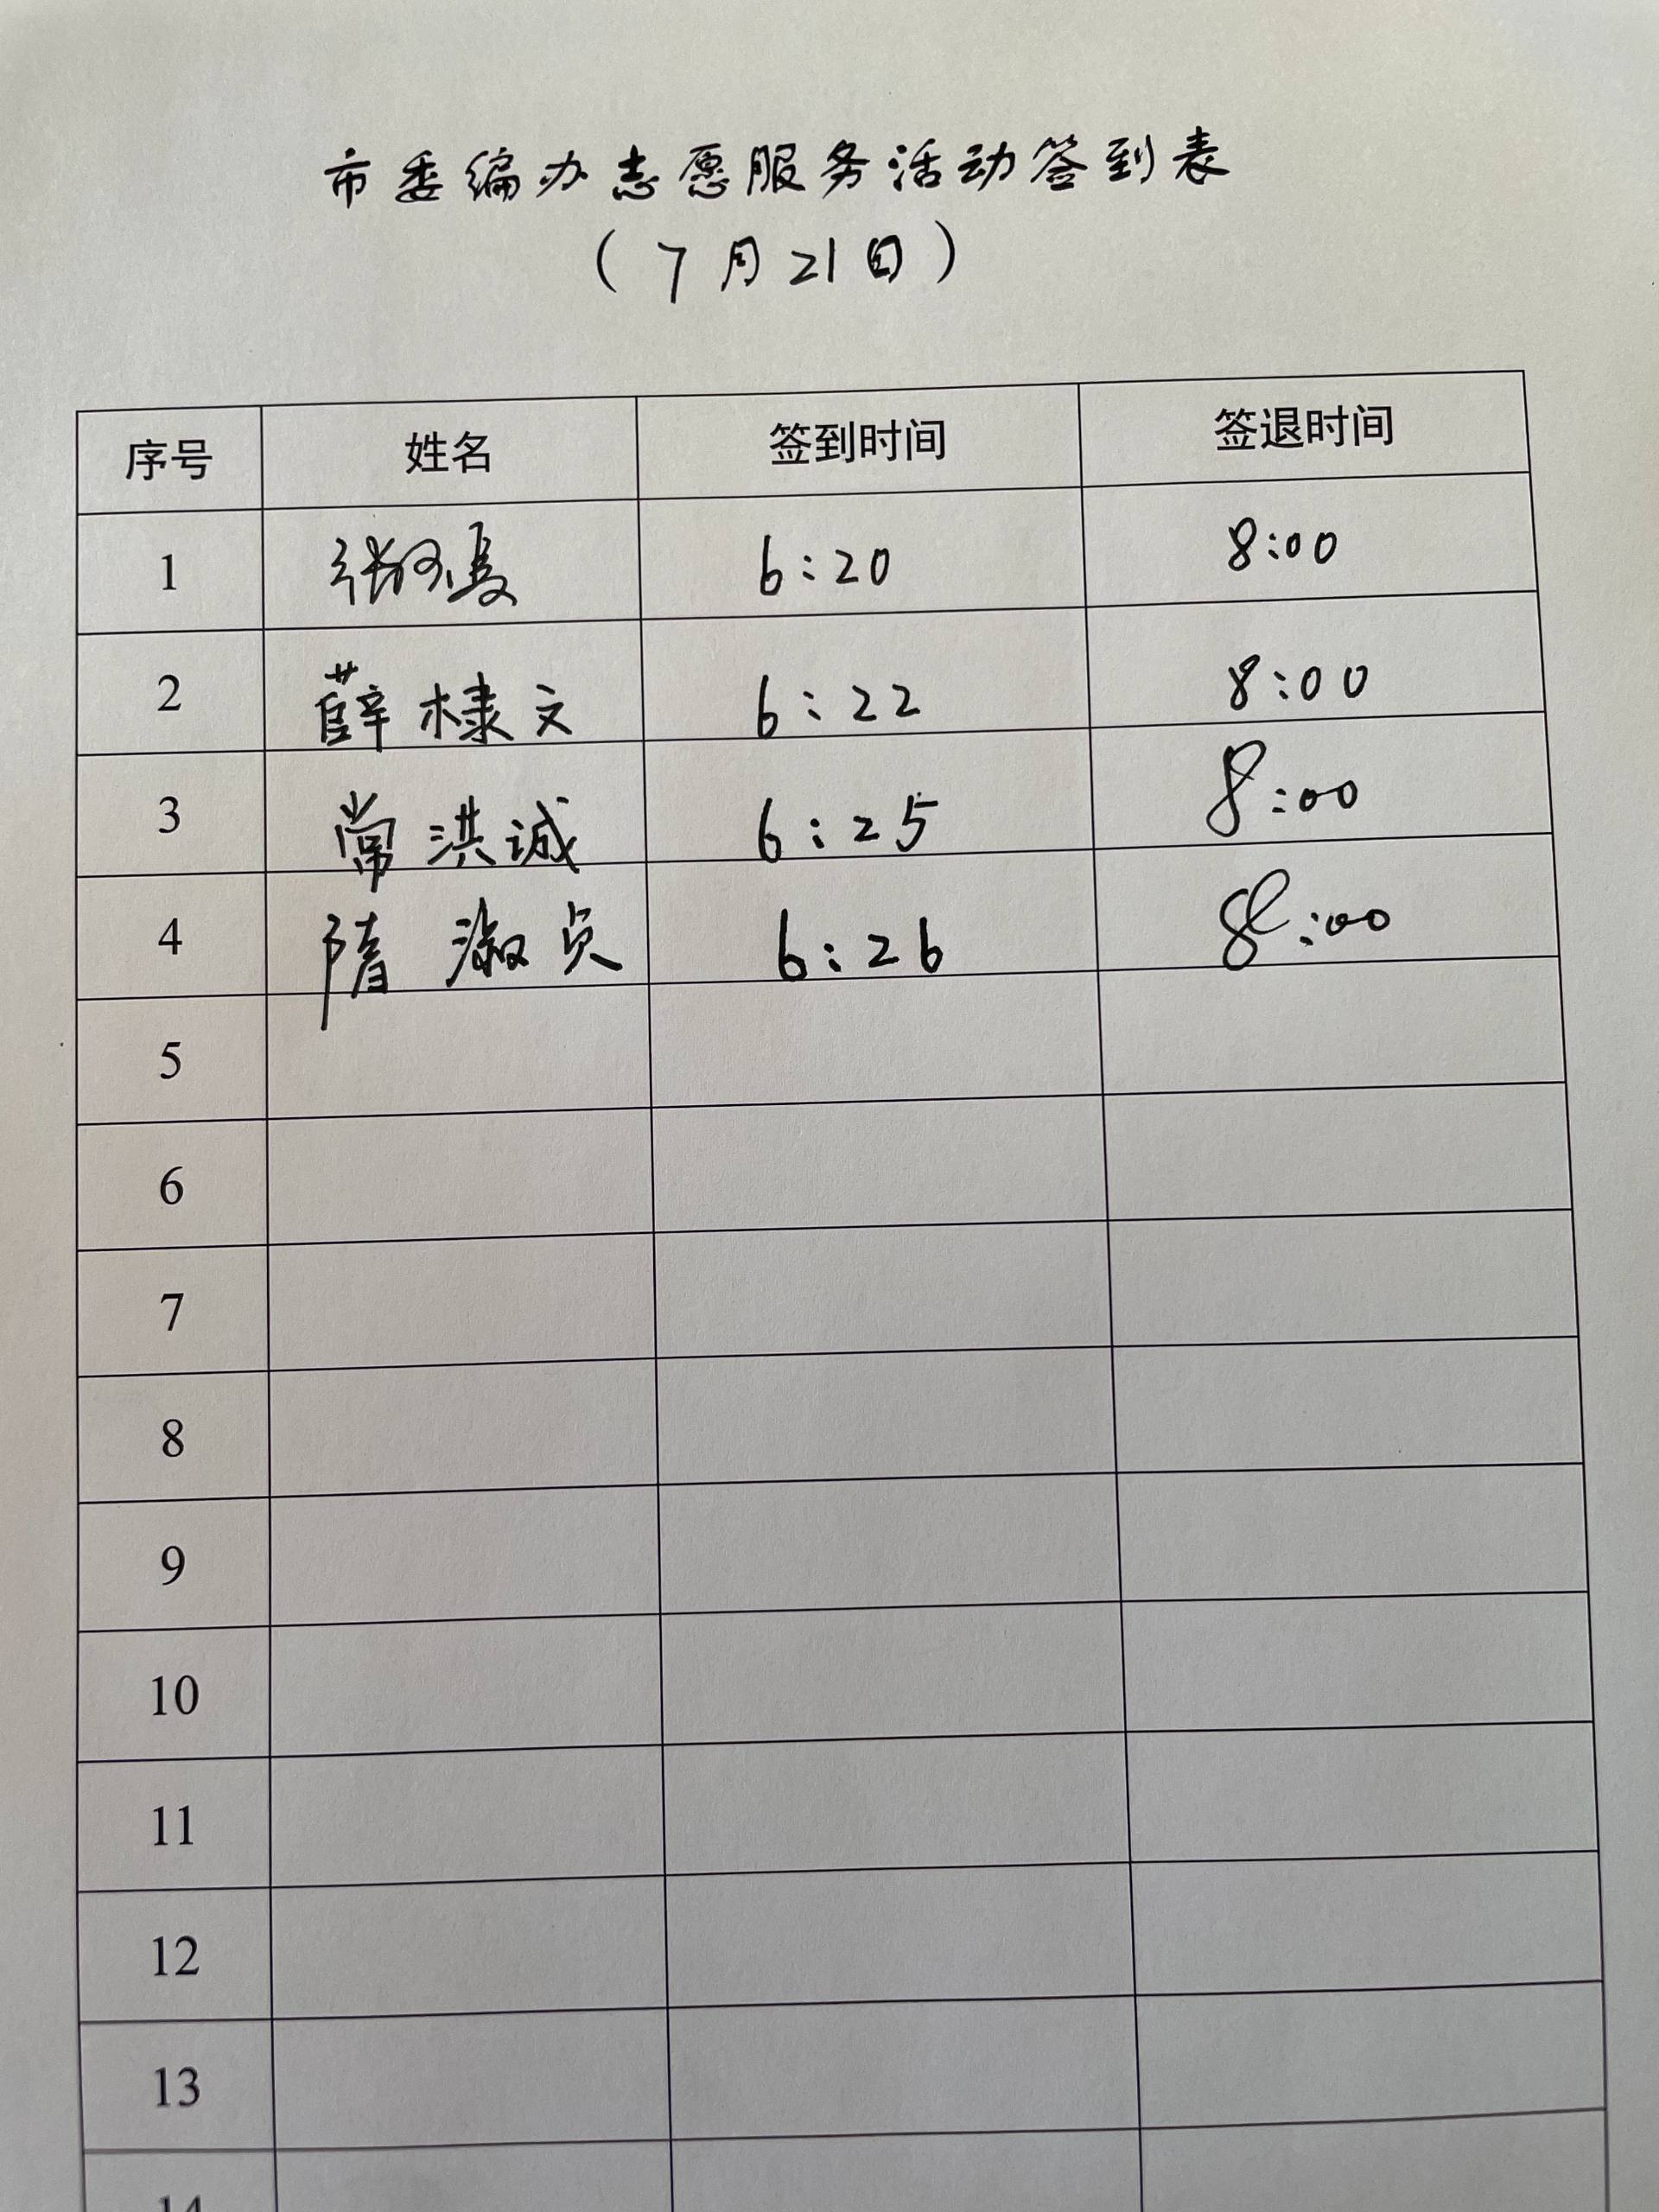 市委编办志愿服务活动签到表
（7月21日）
序号 姓名 签到时间 签退时间
1 6:20 8:00
2 薛棣文 6:22 8:00
3 常洪诚 6:25 8:00
4 隋淑贞 6:26 8:00
5
6
7
8
9
10
11
12
13
14